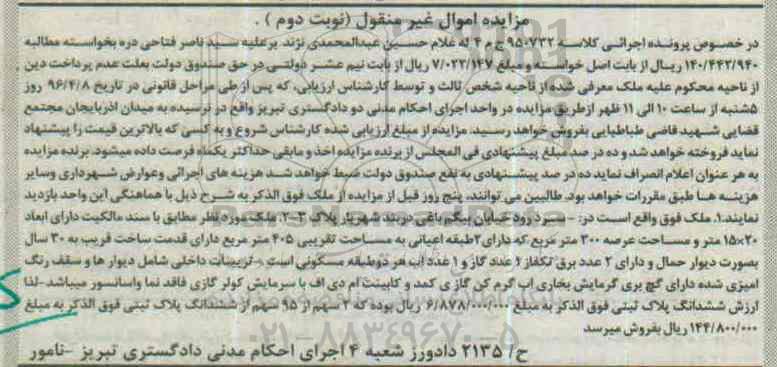 مزایده اموال غیر منقول (نوبت دوم) .
در خصوص پرونده اجرائی کلاسه ۹۵۰۷۳۲ ج م ۴ له غلام حسین عبدالمحمدی نژند برعلیه سید ناصر فتاحی دره بخواسته مطالبه
۱۴۰/۴۴۳/۹۴۰ ریال از بابت اصل خواسته و مبلغ ۷/۰۲۲/۱۴۷ ریال از بابت نیم عشر دولتی در حق صندوق دولت بعلت عدم پرداخت دین
از ناحیه محکوم علیه ملک معرفی شده از ناحیه شخص ثالث و توسط کارشناس ارزیابی، که پس از طی مراحل قانونی در تاریخ ۹۶/۴/۸ روز
۵شنبه از ساعت ۱۰ الی ۱۱ ظهر ازطریق مزایده در واحد اجرای احکام مدنی دو دادگستری تبریز واقع در نرسیده به میدان اذربایجان مجتمع
قضایی شهید قاضی طباطبایی بفروش خواهد رسید. مزایده از مبلغ ارزیابی شده کارشناس شروع و به کسی که بالاترین قیمت را پیشنهاد
نماید فروخته خواهد شد و ده در صد مبلغ پیشنهادی فی المجلس از برنده مزایده اخذ و مابقی حداکثر یکماه فرصت داده میشود. برنده مزایده
به هر عنوان اعلام انصراف نماید ده در صد پیشنهادی به نفع صندوق دولت ضبط خواهد شد هزینه های اجرائی وعوارض شهرداری وسایر
هزینه ها طبق مقررات خواهد بود. طالبین می توانند، پنج روز قبل از مزایده از ملک فوق الذکر به شرح ذیل با هماهنگی این واحد بازدید
نمایند.۱. ملک فوق واقع است در: - سرد رود خیابان بیگم باغی دربند شهریار پلاک ۳-۲. ملک مورد نظر مطابق با سند مالکیت دارای ابعاد
۲۰×۱۵ متر و مساحت عرصه ۳۰۰ متر مربع که دارای ۲طبقه اعیانی به مساحت تقریبی ۴۰۵ متر مربع دارای قدمت ساخت قریب به ۳۰ سال
بصورت دیوار حمال و دارای ۲ عدد برق تکفاز ۱ عدد گاز و ۱ عدد اب هر دوطبقه مسکونی است - تزیینات داخلی شامل دیوار ها و سقف رنگ
امیزی شده دارای گچ بری گرمایش بخاری اب گرم کن گاز ی کمد و کابینت ام دی اف با سرمایش کولر گازی فاقد نما واسانسور میباشد-لذا
ارزش ششدانگ پلاک ثبتی فوق الذکر به مبلغ ۶/۸۷۸/۰۰۰/۰۰۰ ریال بوده که ۲ سهم از ۹۵ سهم از ششدانگ پلاک ثبتی فوق الذکر به مبلغ
۱۴۴/۸۰۰/۰۰۰ ریال بفروش میرسد
ح/ ۲۱۳۵ دادورز شعبه ۴ اجرای احکام مدنی دادگستری تبریز -نامور
۰۲۱-۸۸۳۴۹۶۷۰-۵